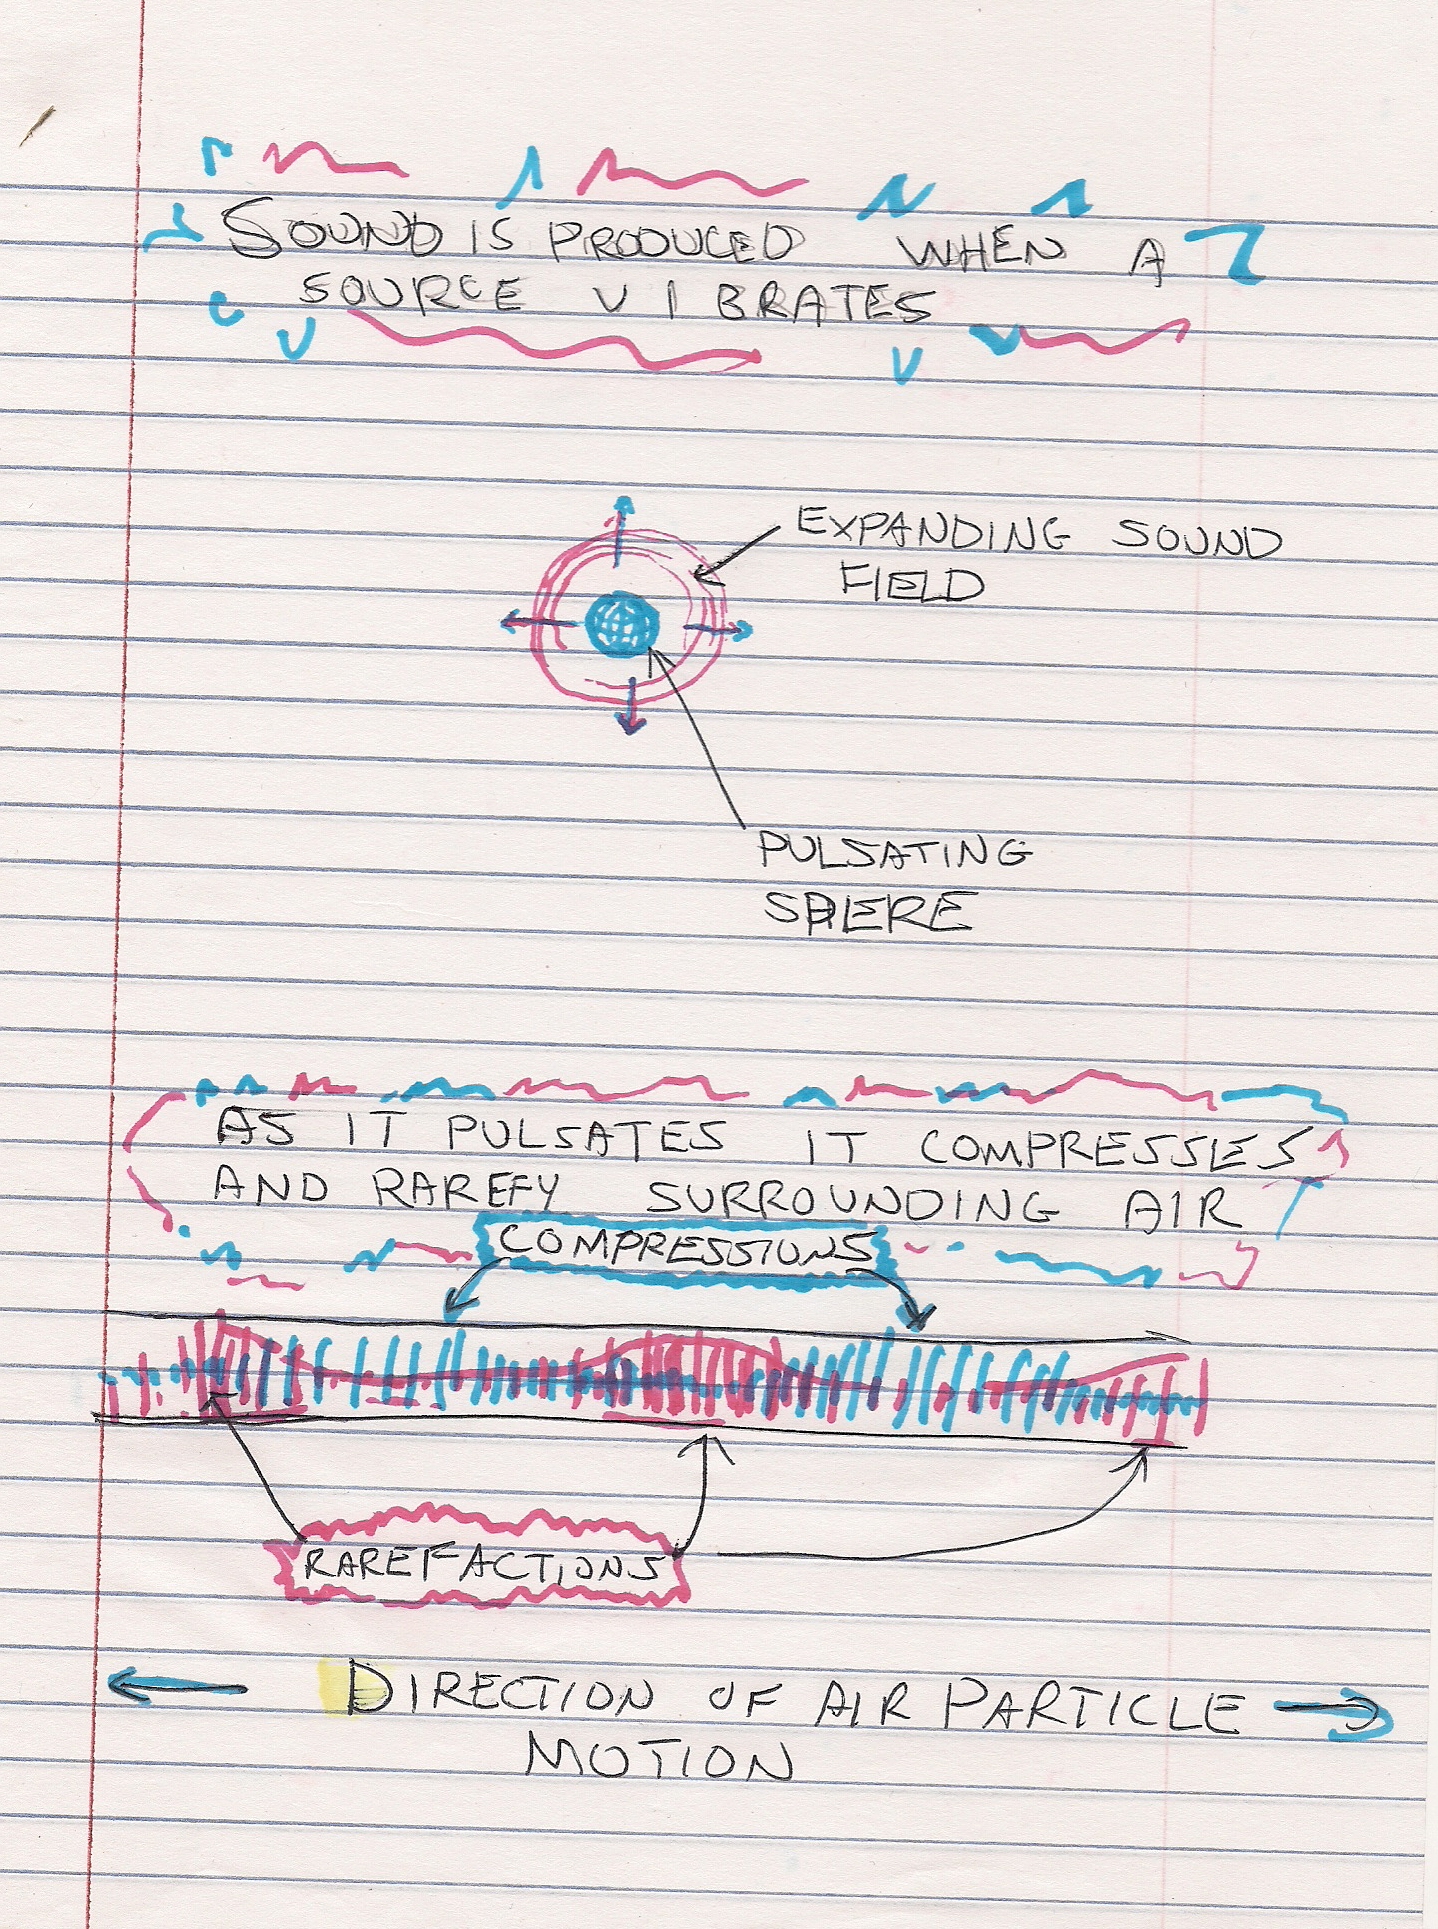 SOUND IS PRODUCED WHEN A
SOURCE VIBRATES
EXPANDING SOUND
FIELD
PULSATING
SPHERE
AS IT PULSATES IT COMPRESSES
AND RAREFY SURROUNDING AIR
COMPRESSIONS
RAREFACTIONS
DIRECTION OF AIR PARTICLE
MOTION